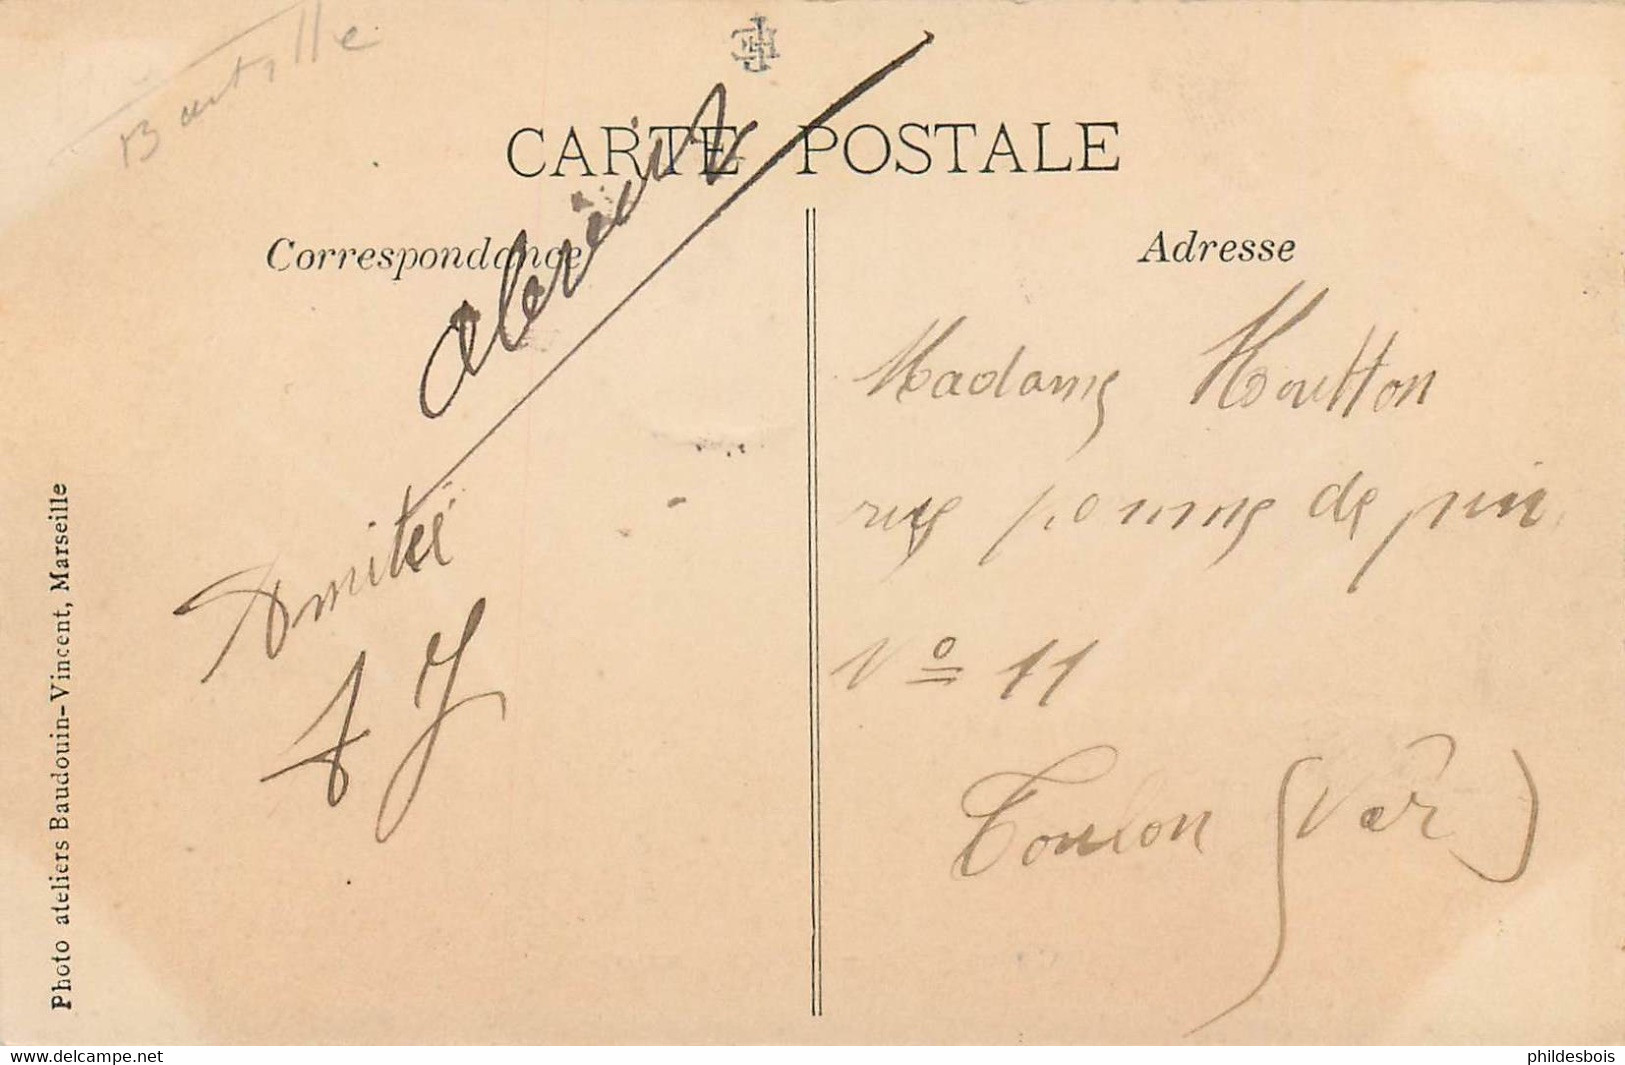 CARTE POSTALE
Correspondance
Amitié
AJ
Adresse
Madame Moutton
rue pomme de pin
Nº 11
Toulon (Var)
Photo ateliers Baudouin-Vincent, Marseille
www.delcampe.net
phildesbois